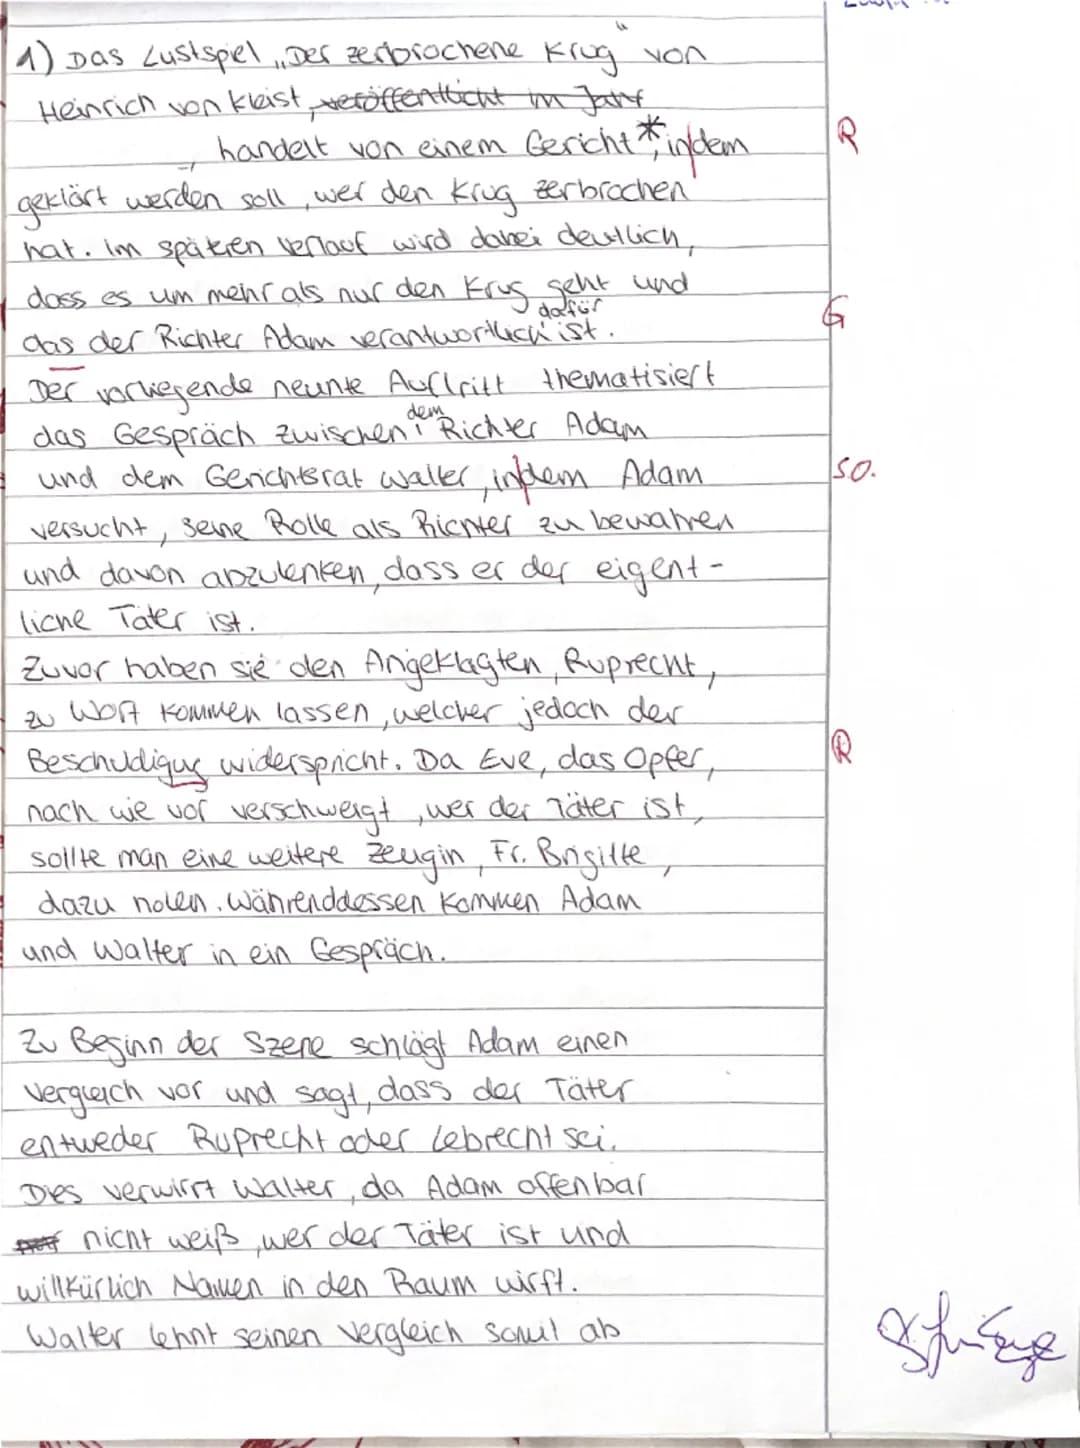 1) Das Lustspiel „Der zerbrochene Krug" von
Heinrich von Kleist, veröffentlicht im Jahr
, handelt von einem Gericht*, indem
R
geklärt werden soll, wer den Krug zerbrochen
hat. Im späteren Verlauf wird dabei deutlich,
dass es um mehr als nur den Krug geht und
das der Richter Adam verantwortlich dafür ist.
G
Der vorliegende neunte Auftritt thematisiert
das Gespräch zwischen dem Richter Adam
und dem Gerichtsrat Walter, indem Adam
so.
versucht, seine Rolle als Richter zu bewahren
und davon abzulenken, dass er der eigent-
liche Täter ist.
Zuvor haben sie den Angeklagten, Ruprecht,
zu Wort kommen lassen, welcher jedoch der
Beschuldigug widerspricht. Da Eve, das Opfer,
R
nach wie vor verschweigt, wer der Täter ist,
sollte man eine weitere Zeugin, Fr. Brigitte,
dazu holen. Währenddessen kommen Adam
und Walter in ein Gespräch.
Zu Beginn der Szene schlägt Adam einen
Vergleich vor und sagt, dass der Täter
entweder Ruprecht oder Lebrecht sei.
Dies verwirrt Walter, da Adam offenbar
nicht weiß, wer der Täter ist und
willkürlich Namen in den Raum wirft.
Walter lehnt seinen Vergleich somit ab